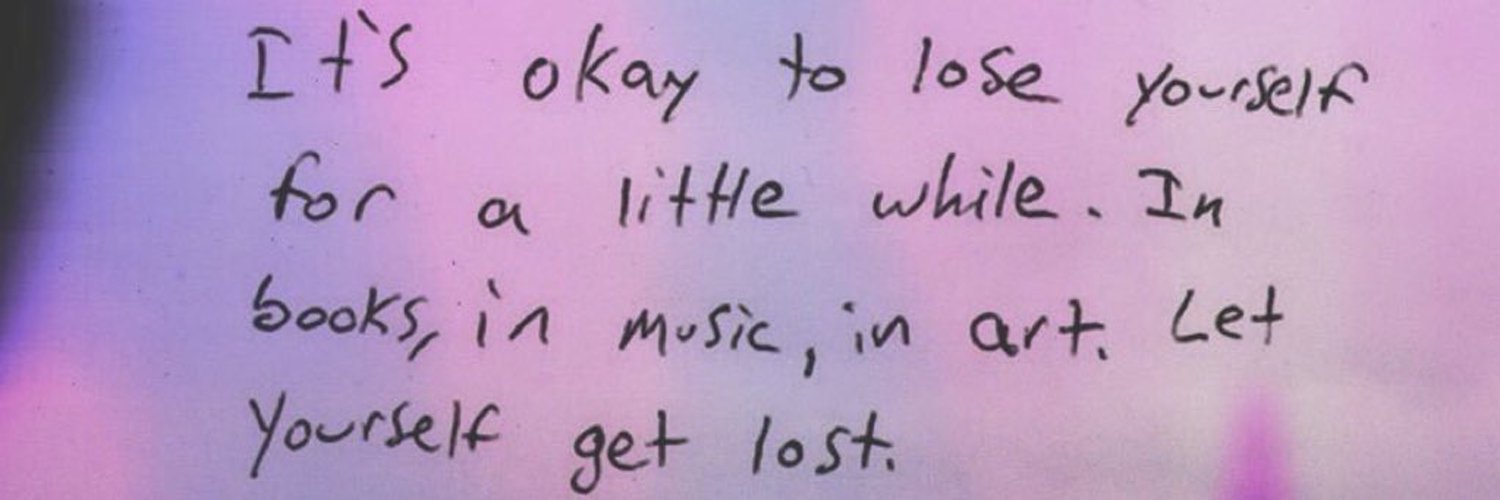 It's okay to lose yourself
for a little while. In
books, in music, in art. Let
yourself get lost.